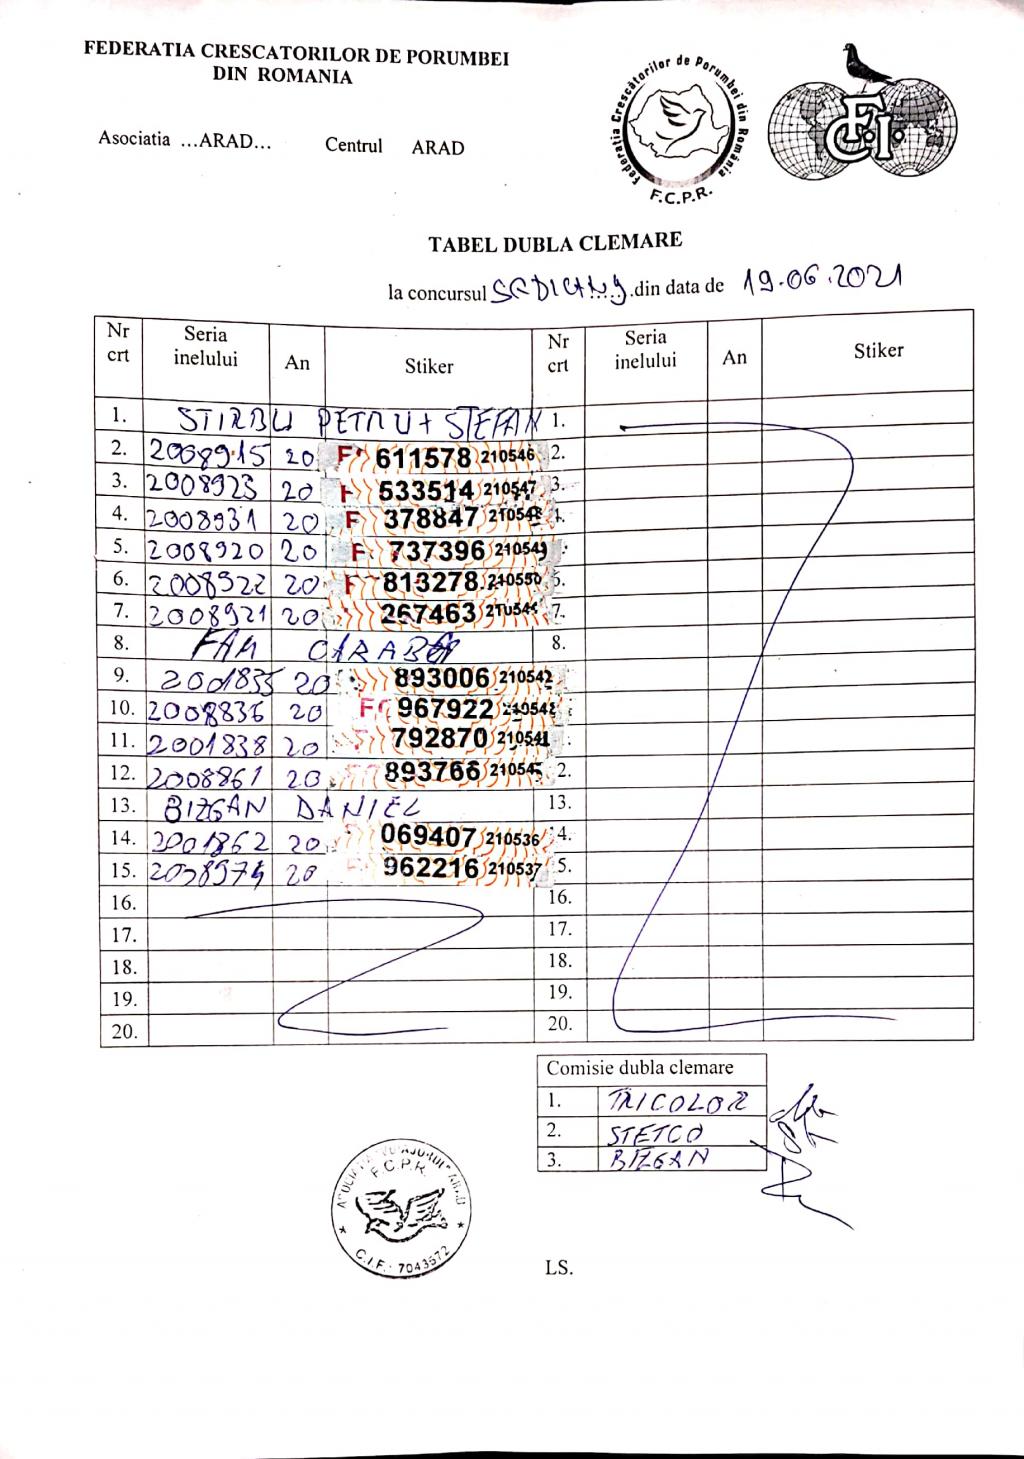 FEDERATIA CRESCATORILOR DE PORUMBEI
DIN ROMANIA
Federatia Crescătorilor de Porumbei din România
F.C.P.R.
F.C.I.
Asociatia ...ARAD... Centrul ARAD
TABEL DUBLA CLEMARE
la concursul din data de 19.06.2021
Nr crt Seria inelului An Stiker Nr crt Seria inelului An Stiker
1. STIRBU PETRU + STEFAN 1.
2. 2008915 20 F 611578 210546 2.
3. 2008923 20 533514 210547 3.
4. 2008931 20 F 378847 210548
5. 2008920 20 F 737396 210549
6. 2008922 20 F 813278 210550 6.
7. 2008921 20 267463 7.
8. FAM CARABA 8.
9. 2001835 20 893006 210542
10. 2008836 20 F 967922
11. 2001838 20 792870 210541
12. 2008861 20 893766 210545 2.
13. BIZGAN DANIEL 13.
14. 2001862 20 069407 210536 4.
15. 20 962216 210537 5.
16. 16.
17. 17.
18. 18.
19. 19.
20. 20.
Comisie dubla clemare
1. TRICOLOR
2. STETCO
3. BIZGAN
F.C.P.R.
C.I.F.: 7043572
LS.